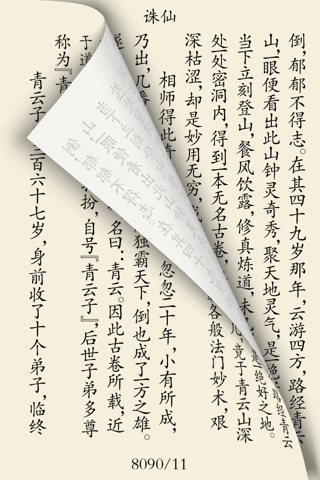 诛仙
倒，郁郁不得志。在其四十九岁那年，云游四方，路经青云
山，一眼便看出此山钟灵奇秀，聚天地灵气，是一绝好之地。
当下立刻登山，餐风饮露，修真炼道，未几，竟于青云山深
处一处密洞内，得到一本无名古卷，各般法门妙术，艰
深枯涩，却是妙用无穷，
相师得此 忽忽二十年，小有所成，
乃出，几番 独霸天下，倒也成了一方之雄。
遂 名曰：青云。因此古卷所载，近
于道 扮，自号『青云子』，后世子弟多尊
称为『青
青云子 三百六十七岁，身前收了十个弟子，临终
8090/11